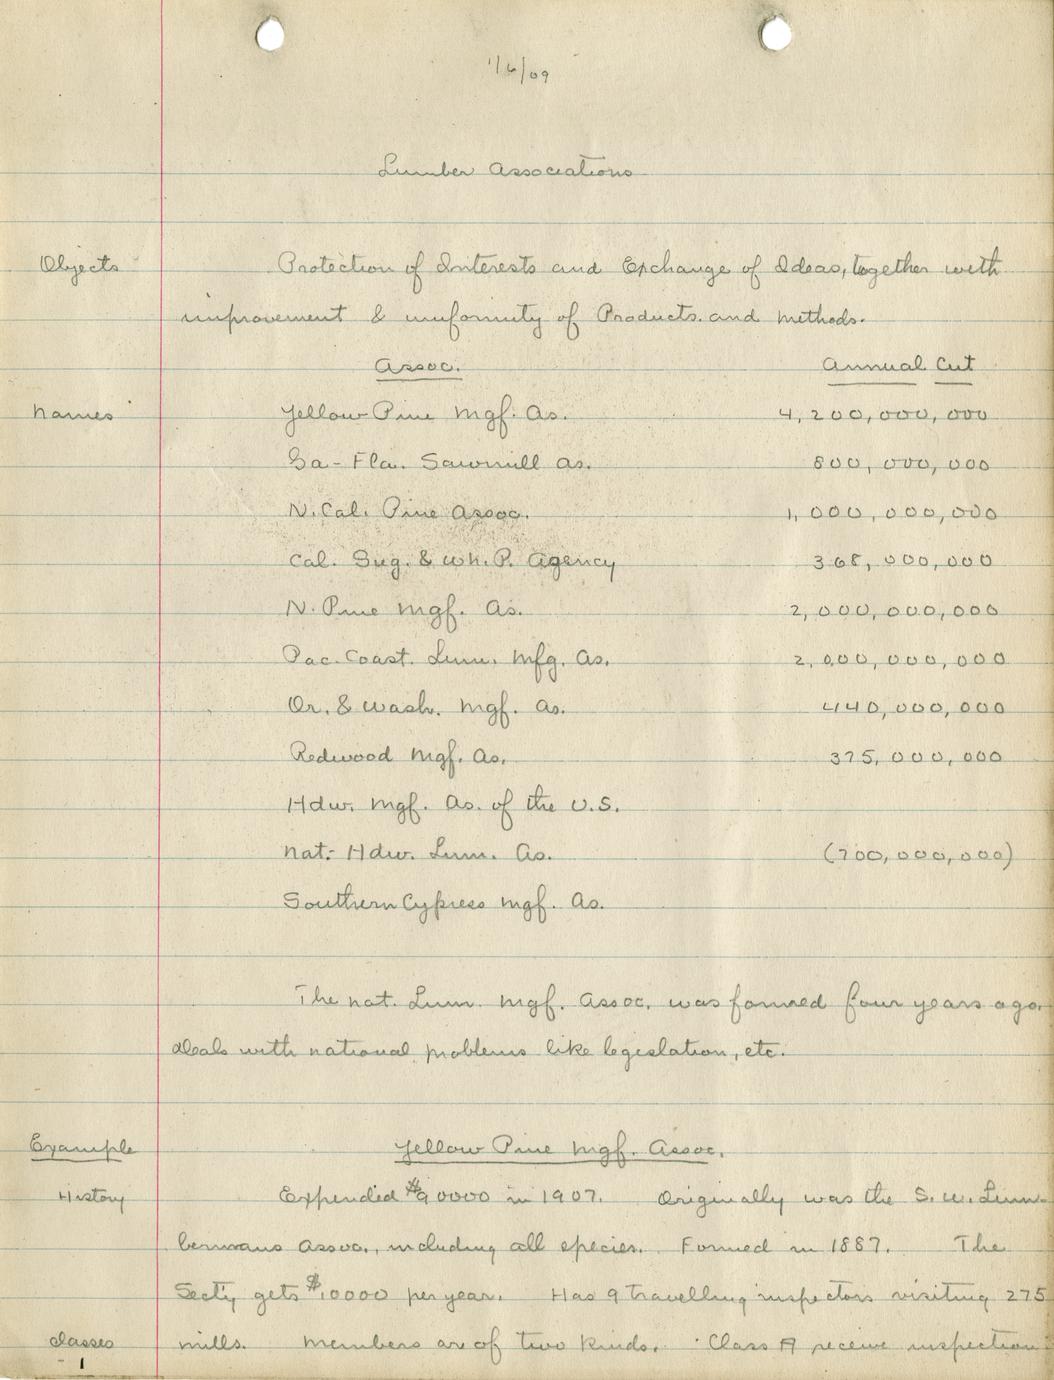 1/6/09
Lumber Associations
Objects Protection of Interests and Exchange of Ideas, together with
improvement & uniformity of Products and methods.
Assoc. Annual Cut
Names Yellow Pine Mgf. As. 4,200,000,000
Ga-Fla. Sawmill As. 800,000,000
N. Cal. Pine Assoc. 1,000,000,000
Cal. Sug. & Wh. P. Agency 368,000,000
N. Pine Mgf. As. 2,000,000,000
Pac. Coast. Lum. Mfg. As. 2,000,000,000
Or. & Wash. Mgf. As. 440,000,000
Redwood Mgf. As. 375,000,000
Hdw. Mgf. As. of the U.S.
Nat. Hdw. Lum. As. (700,000,000)
Southern Cypress Mgf. As.
The Nat. Lum. Mgf. Assoc. was formed four years ago.
deals with national problems like legislation, etc.
Example Yellow Pine Mgf. Assoc.
History Expended $90000 in 1907. Originally was the S. W. Lum-
bermans Assoc., including all species. Formed in 1887. The
Secty gets $10000 per year. Has 9 travelling inspectors visiting 275
classes mills. Members are of two kinds. Class A receive inspection
1